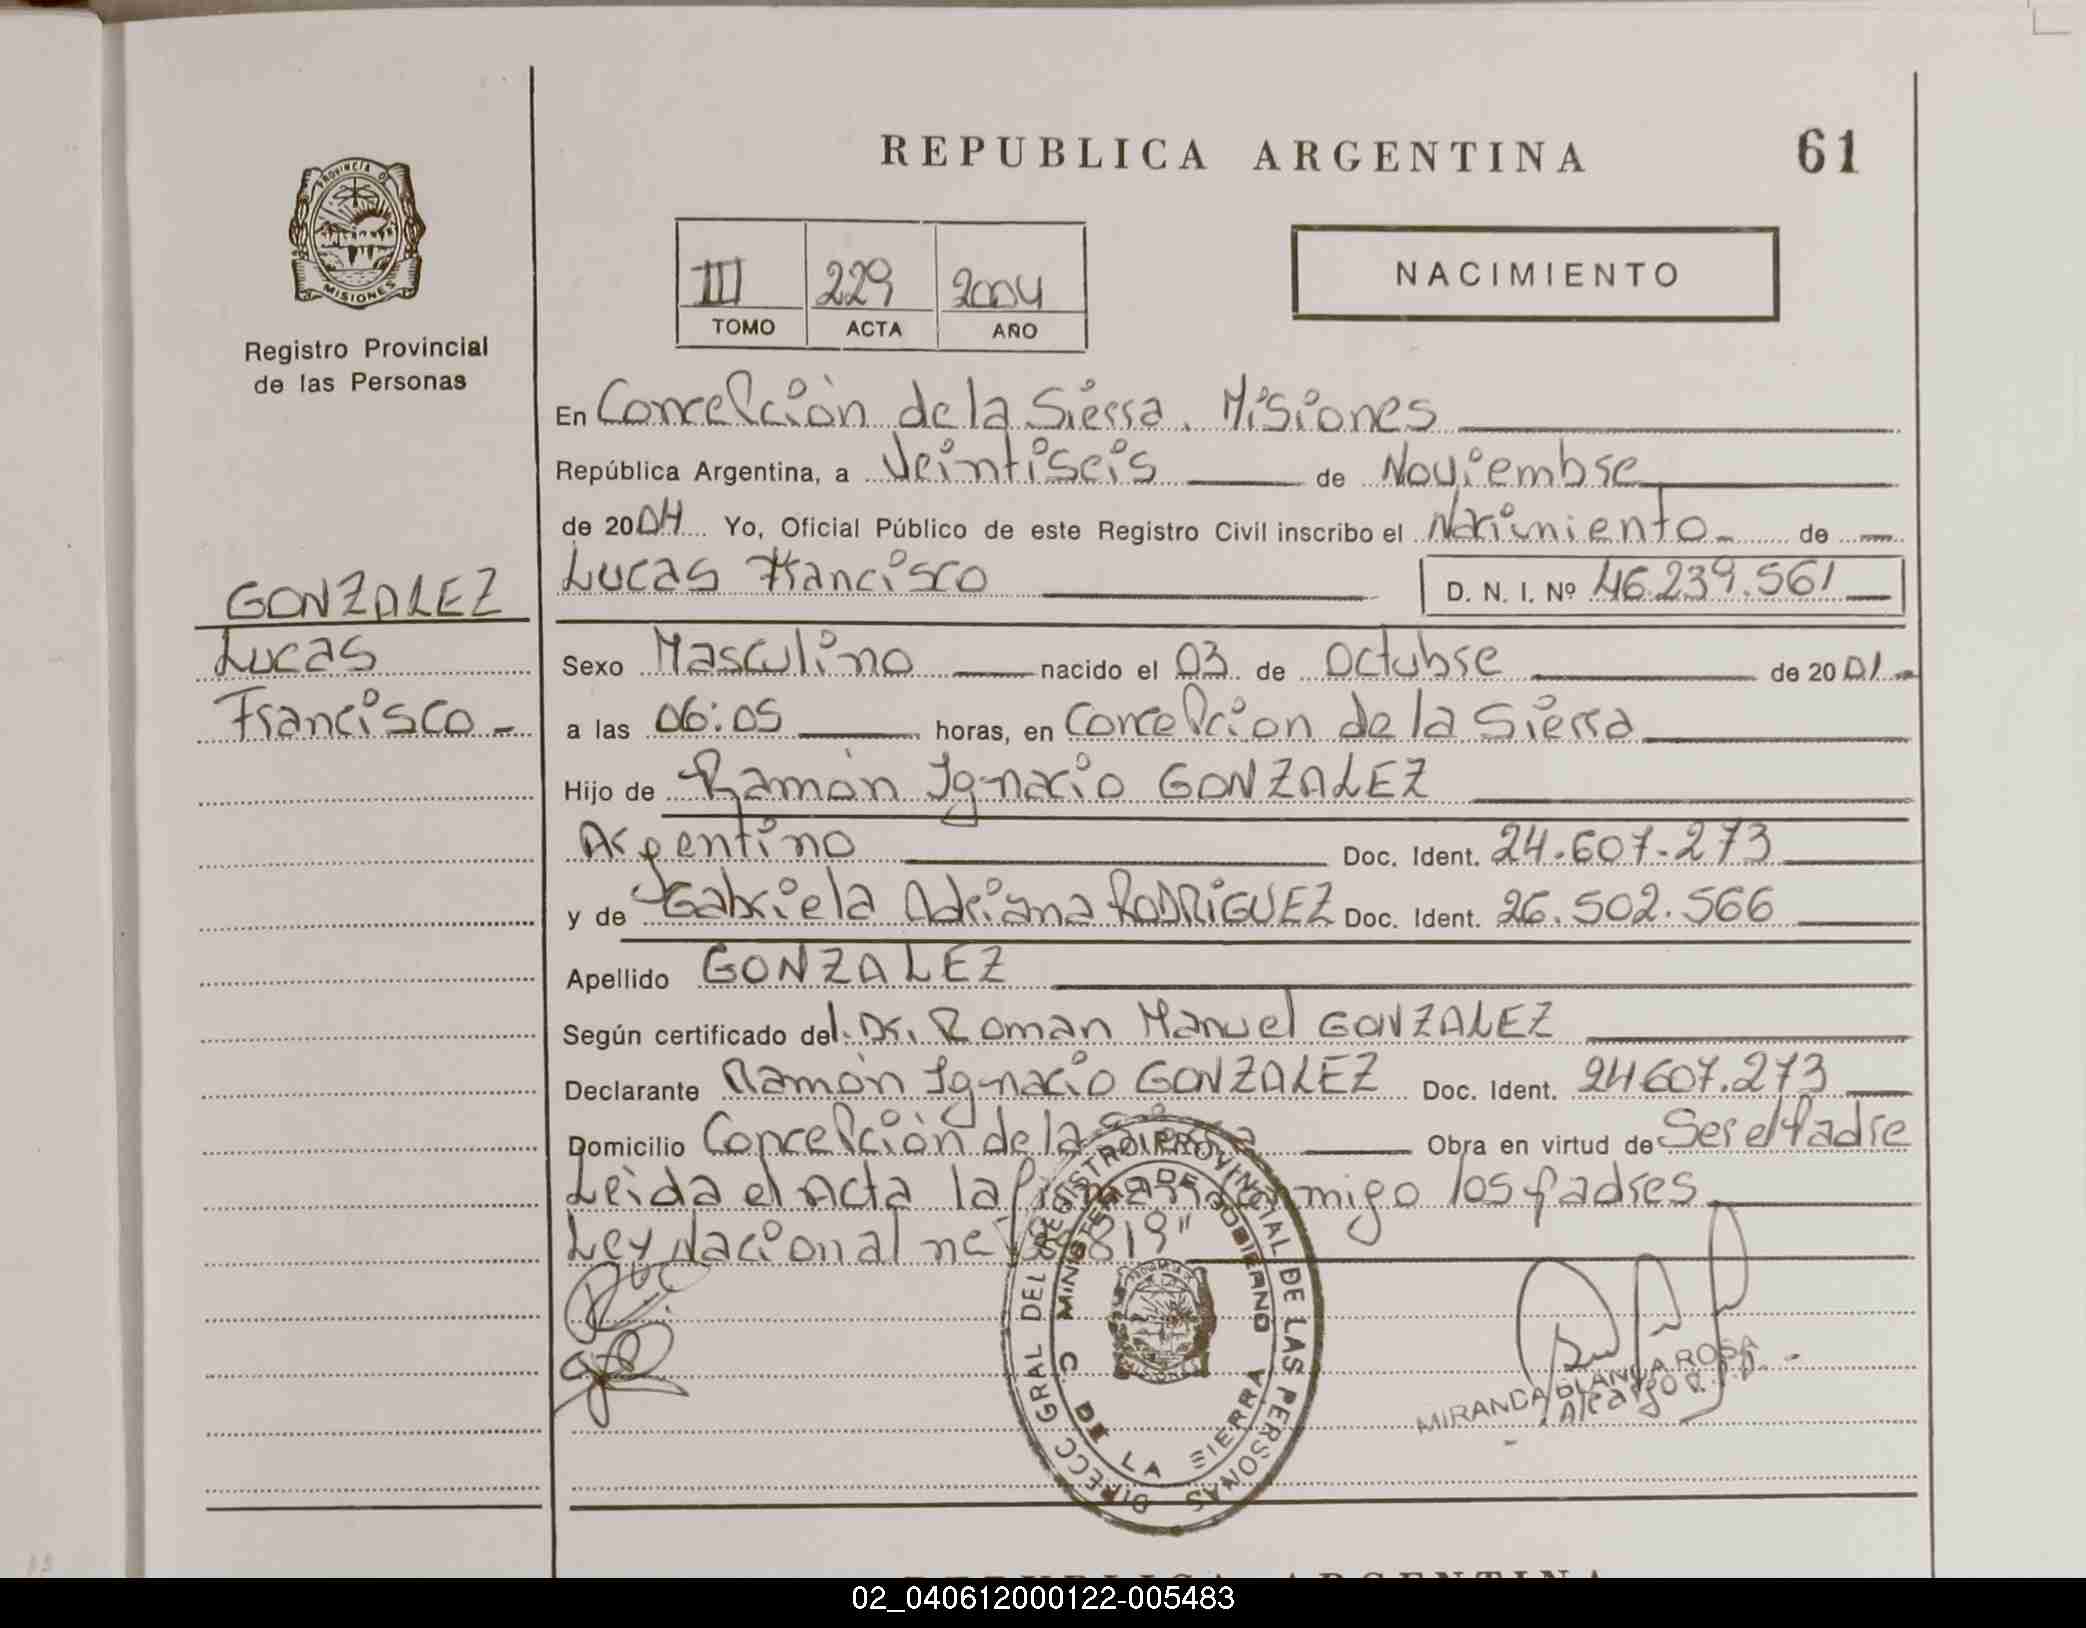 REPUBLICA ARGENTINA
61
PROVINCIA DE
MISIONES
Registro Provincial
de las Personas
III 229 2004
TOMO ACTA AÑO
NACIMIENTO
En Concepción de la Sierra. Misiones
República Argentina, a Veintiseis de Noviembre
de 2004 Yo, Oficial Público de este Registro Civil inscribo el Nacimiento de
Lucas Francisco
D. N. I. Nº 46.239.561
GONZALEZ
Lucas
Francisco
Sexo Masculino nacido el 03 de Octubre de 2001
a las 06:05 horas, en Concepcion de la Sierra
Hijo de Ramón Ignacio GONZALEZ
Argentino Doc. Ident. 24.607.273
y de Gabriela Adriana RODRIGUEZ Doc. Ident. 26.502.566
Apellido GONZALEZ
Según certificado del Dr. Roman Manuel GONZALEZ
Declarante Ramón Ignacio GONZALEZ Doc. Ident. 24607.273
Domicilio Concepción de la Sierra Obra en virtud de Ser el padre
Leida el Acta la firman conmigo los padres
Ley Nacional
DIRECC GRAL DEL REGISTRO PROVINCIAL DE LAS PERSONAS
MINISTERIO DE GOBIERNO
C. DE LA SIERRA
MIRANDA BLANCA ROSA
A/cargo
REPUBLICA ARGENTINA
02_040612000122-005483